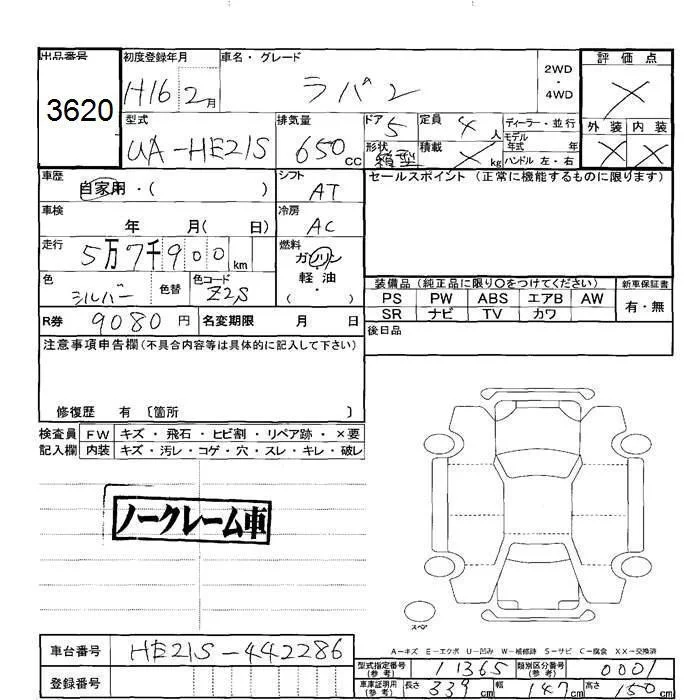 出品番号 初度登録年月 車名・グレード 2WD ・ 4WD 評価点
3620 H16 2月 ラパン ×
型式 排気量 ドア 定員 ディーラー・並行 外装 内装
UA-HE21S 650cc 5 4人 モデル年式 年 × ×
形状 箱型 積載 × kg ハンドル 左・右
車歴 シフト セールスポイント (正常に機能するものに限ります)
自家用・( ) AT
車検 冷房
年 月( 日) AC
走行 燃料
5万7千900km ガソリン
軽油
・
( )
色 色替 色コード
シルバー Z2S
装備品 (純正品に限り○をつけてください) 新車保証書
PS PW ABS エアB AW 有・無
SR ナビ TV カワ
R券 9080円 名変期限 月 日
後日品
注意事項申告欄(不具合内容等は具体的に記入して下さい)
修復歴 有 〔箇所 〕
検査員 FW キズ・飛石・ヒビ割・リペア跡・×要
記入欄 内装 キズ・汚レ・コゲ・穴・スレ・キレ・破レ
ノークレーム車
スペア
A-キズ E-エクボ U-凹み W-補修跡 S-サビ C-腐食 XX-交換済
車台番号 HE21S-442286
型式指定番号(参考) 11365 類別区分番号(参考) 0001
登録番号
車庫証明用(参考) 長さ 339cm 幅 147cm 高さ 150cm